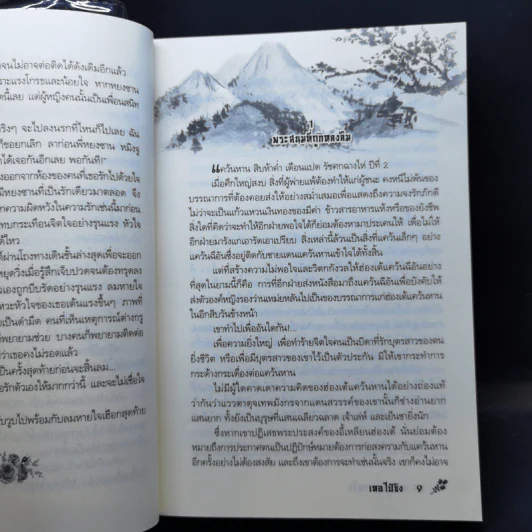 จนไม่อาจต่อติดได้ดังเดิมอีกแล้ว
าะแรงโกรธและน้อยใจ หากหยงซาน
ดนี้เลย แต่ผู้หญิงคนนั้นเป็นเพื่อนสนิท
ริงๆ จะไปลงนรกที่ไหนก็ไปเลย ฉัน
ก็ขอยกเลิก ลาก่อนพี่หยงซาน หมิงรู
ได้เจอกันอีกเลย พอกันที!"
ออกจากห้องของคนที่เธอรักไปด้วยใจ
มีหยงซานที่เป็นรักเดียวมาตลอด จึง
ความผิดหวังในความรักเช่นนี้มาก่อน
บกระเทือนจิตใจอย่างรุนแรง หัวใจ
ได้ไหว
ผ่านโถงทางเดินชั้นล่างสุดเพื่อจะออก
หยุดวิ่งเมื่อรู้สึกเจ็บปวดจนต้องทรุดลง
วเองถูกบีบรัดอย่างรุนแรง ลมหายใจ
หวะหัวใจของเธอเต้นแรงขึ้นๆ ภาพที่
เป็นดำมืด คนที่เห็นเหตุการณ์ต่างกรู
ก็พยายามช่วย บางคนก็พยายามติดต่อ
ว่าเธอคงไม่รอดแล้ว
ป็นครั้งสุดท้ายก่อนจะสิ้นลม...
อรักตัวเองให้มากกว่านี้ และจะไม่เชื่อใจ
บวูบไปพร้อมกับลมหายใจเฮือกสุดท้าย
1
พระสนมที่ถูกหลงลืม
"แคว้นหาน สิบห้าค่ำ เดือนแปด รัชศกฉางไห่ ปีที่ 2
เมื่อศึกใหญ่สงบ สิ่งที่ผู้พ่ายแพ้ต้องทำให้แก่ผู้ชนะ คงหนีไม่พ้นของ
บรรณาการที่ต้องคอยส่งให้อย่างสม่ำเสมอเพื่อแสดงถึงความจงรักภักดี
ไม่ว่าจะเป็นแก้วแหวนเงินทองของมีค่า ข้าวสารอาหารแห้งหรือของยังชีพ
สิ่งใดที่จะทำให้อีกฝ่ายพอใจได้ก็ย่อมต้องหามาประเคนให้ เพื่อไม่ให้
อีกฝ่ายมารังแกเอารัดเอาเปรียบ สิ่งเหล่านี้ล้วนเป็นสิ่งที่แคว้นเล็กๆ อย่าง
แคว้นฉีอันซึ่งอยู่ติดกับชายแดนแคว้นหานเข้าใจได้ทั้งสิ้น
แต่ที่สร้างความไม่พอใจและวิตกกังวลให้ฮ่องเต้แคว้นฉีอันอย่าง
ที่สุดในยามนี้ก็คือ การที่อีกฝ่ายส่งหนังสือมาถึงแคว้นฉีอันเพื่อบังคับให้
ส่งตัวองค์หญิงรองจ้านเหม่ยหลันไปเป็นของบรรณาการแก่ฮ่องเต้แคว้นหาน
ในอีกสิบวันข้างหน้า
เขาทำไปเพื่ออันใดกัน!...
เพื่อความยิ่งใหญ่ เพื่อทำร้ายจิตใจคนเป็นบิดาที่รักบุตรสาวของตน
ยิ่งชีวิต หรือเพื่อมีบุตรสาวของเขาไว้เป็นตัวประกัน มิให้เขากระทำการ
กระด้างกระเดื่องต่อแคว้นหาน
ไม่มีผู้ใดคาดเดาความคิดของฮ่องเต้แคว้นหานได้อย่างถ่องแท้
ว่ากันว่าแววตาดุจเทพมังกรจากแดนสวรรค์ของเขานั้นก็ช่างอ่านยาก
แสนยาก ทั้งยังเป็นบุรุษที่แสนเฉลียวฉลาด เจ้าเล่ห์ และเย็นชายิ่งนัก
ซึ่งหากเขาปฏิเสธพระประสงค์ของอี้เหลียนฮ่องเต้ นั่นย่อมต้อง
หมายถึงการประกาศตนเป็นปฏิปักษ์หมายต้องการก่อสงครามกับแคว้นหาน
อีกครั้งอย่างไม่ต้องสงสัย และถึงเขาต้องการจะทำเช่นนั้นจริง เขาก็คงไม่อาจ
เหอไป๋ชิง 9